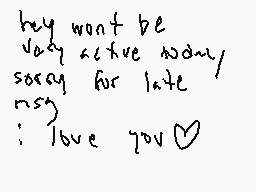 hey wont be
very active today,
sorry for late
msg
i love you ♡